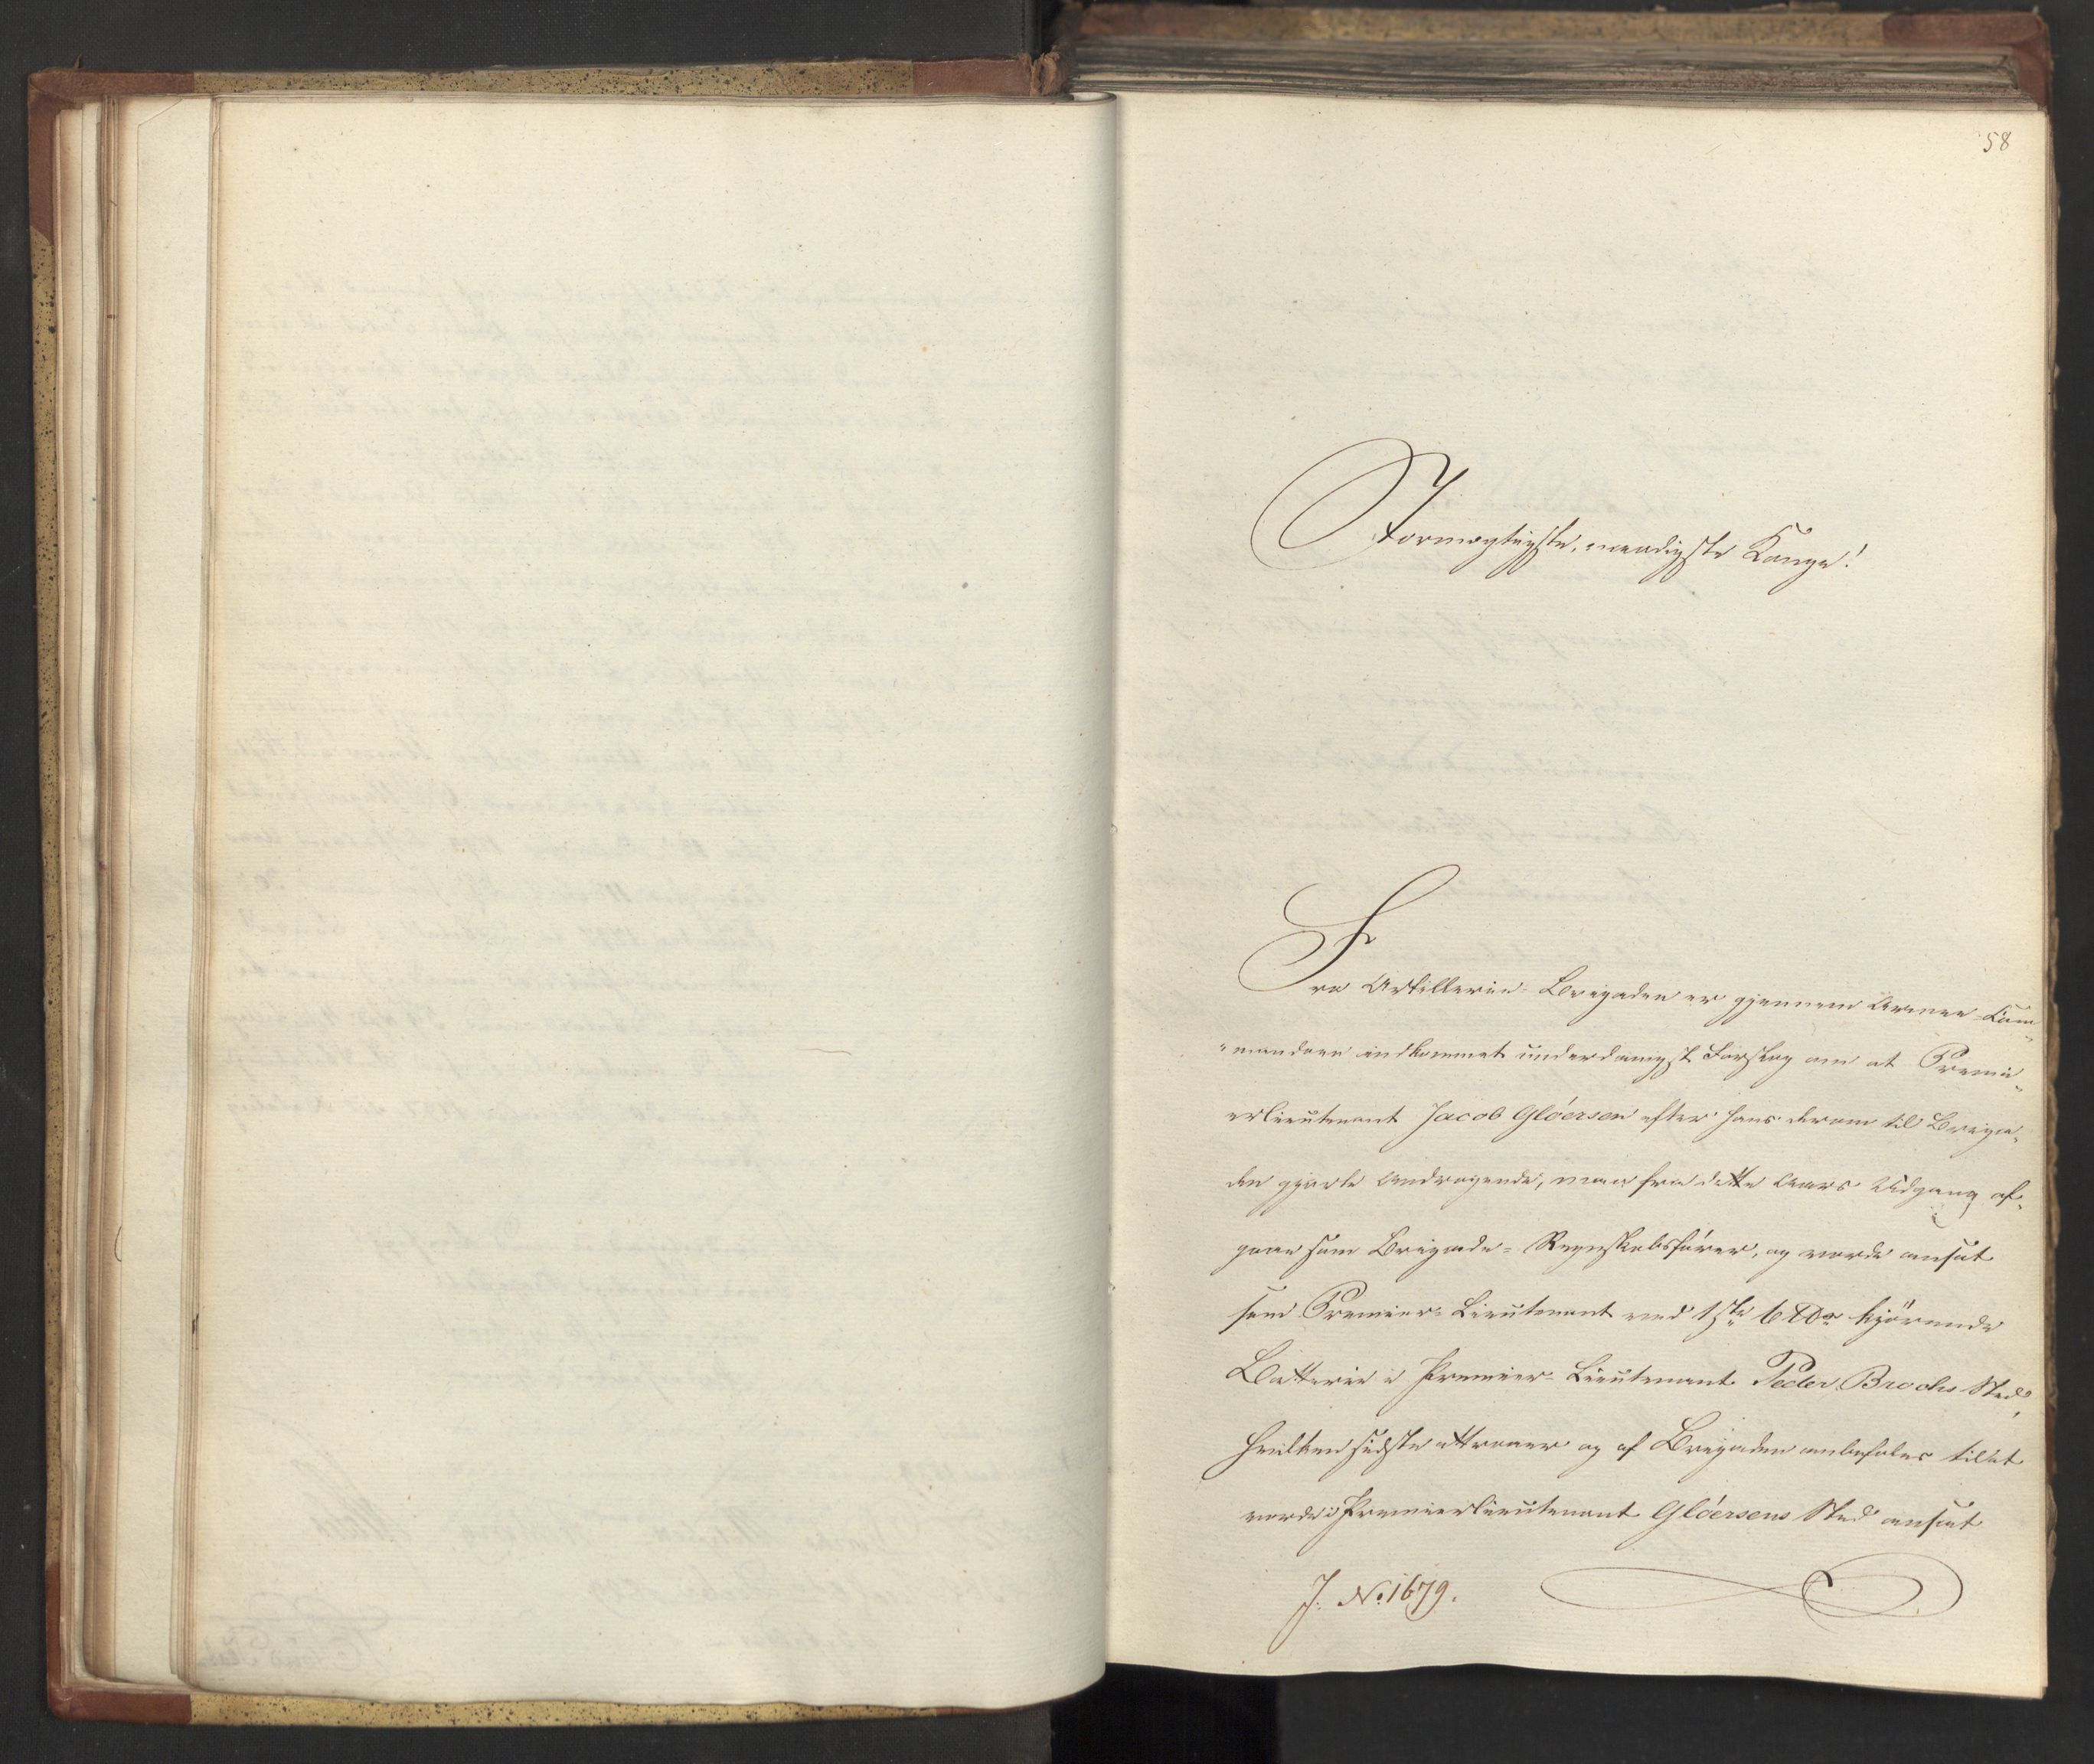 58
Stormægtigste, naadigste Konge!
Fra Artillerie-Brigaden er gjennem Armee-Com-
"mandoen indkommet underdanigst Forslag om at Premi-
erlieutenant Jacob Glöersen efter hans derom til Briga-
den gjorte Andragende, maa fra dette Aars Udgang af-
gaae som Brigade-Regnskabsförer, og vorde ansat
som Premier-Lieutenant ved 1ste 6 ℔ds kjörende
Batterie i Premier-Lieutenant Peder Brochs Sted,
hvilken sidste attraaer og af Brigaden anbefales til at
vorde i Premierlieutenant Glöersens Sted ansat
J. No 1679.